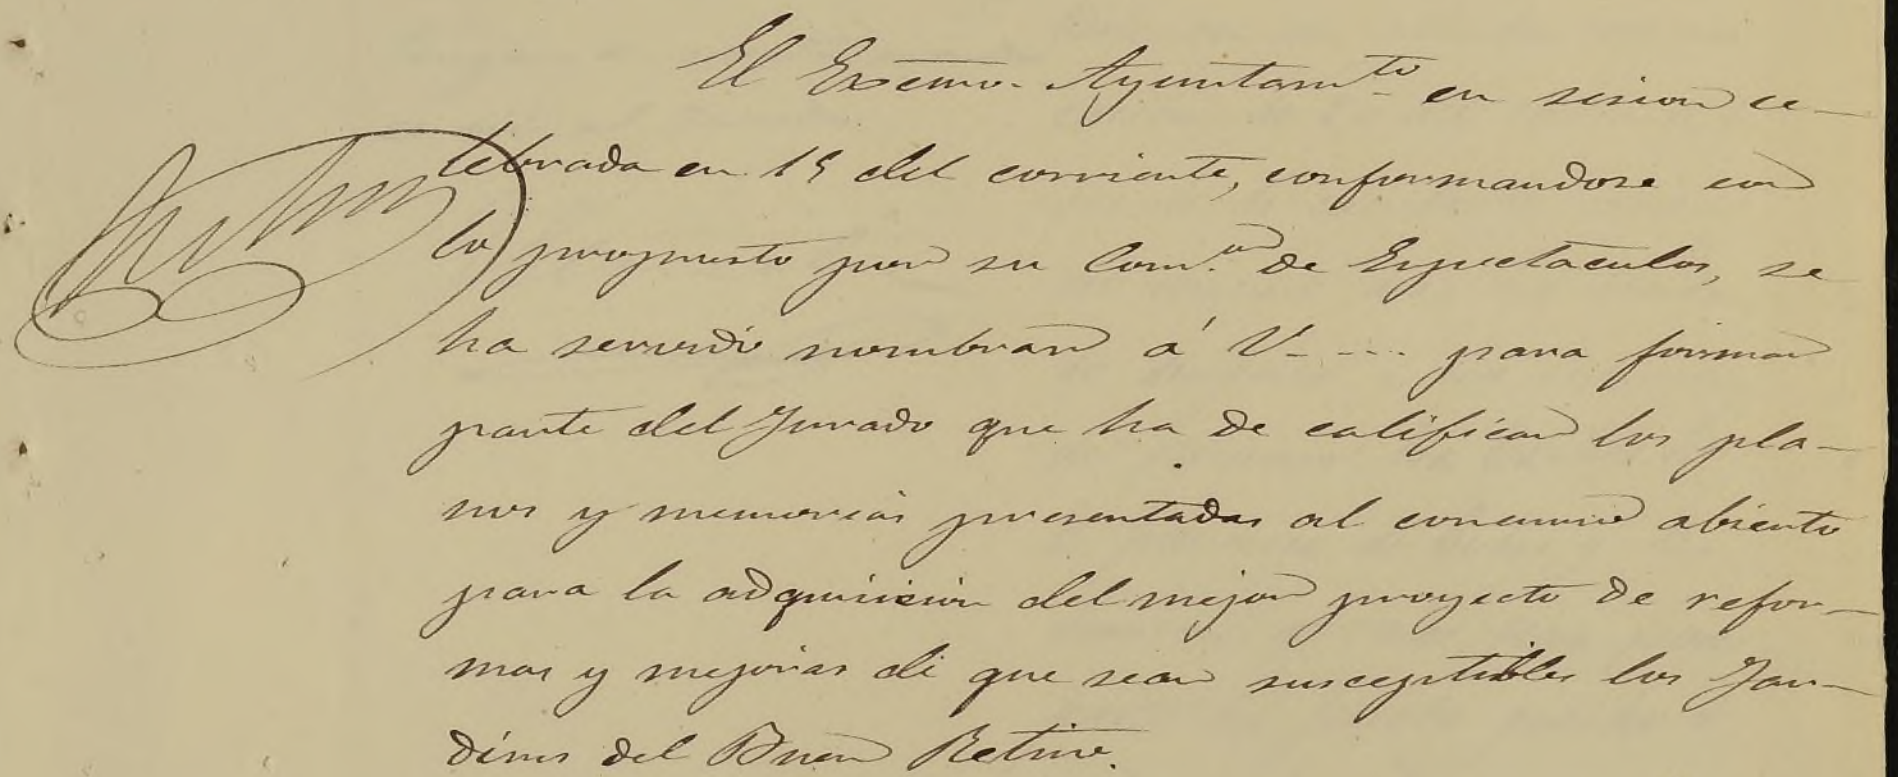 El Excmo. Ayuntam.to en sesion ce-
lebrada en 15 del corriente, conformandose con
lo propuesto por su Com.on de Espectaculos, se
ha servido nombrar á V- .... para formar
parte del Jurado que ha de calificar los pla-
nos y memorias presentadas al concurso abierto
para la adquisicion del mejor proyecto de refor-
mas y mejoras de que sean susceptibles los Jar-
dines del Buen Retiro.